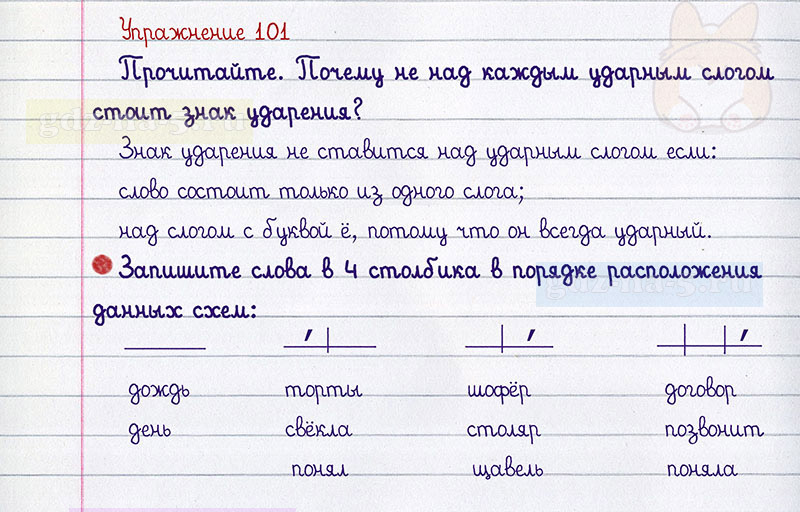 Упражнение 101
Прочитайте. Почему не над каждым ударным слогом
стоит знак ударения?
Знак ударения не ставится над ударным слогом если:
слово состоит только из одного слога;
над слогом с буквой ё, потому что он всегда ударный.
Запишите слова в 4 столбика в порядке расположения
данных схем:
дождь торты шофёр договор
день свёкла столяр позвонит
понял щавель поняла
gdz-na-5.ru
gdz-na-5.ru